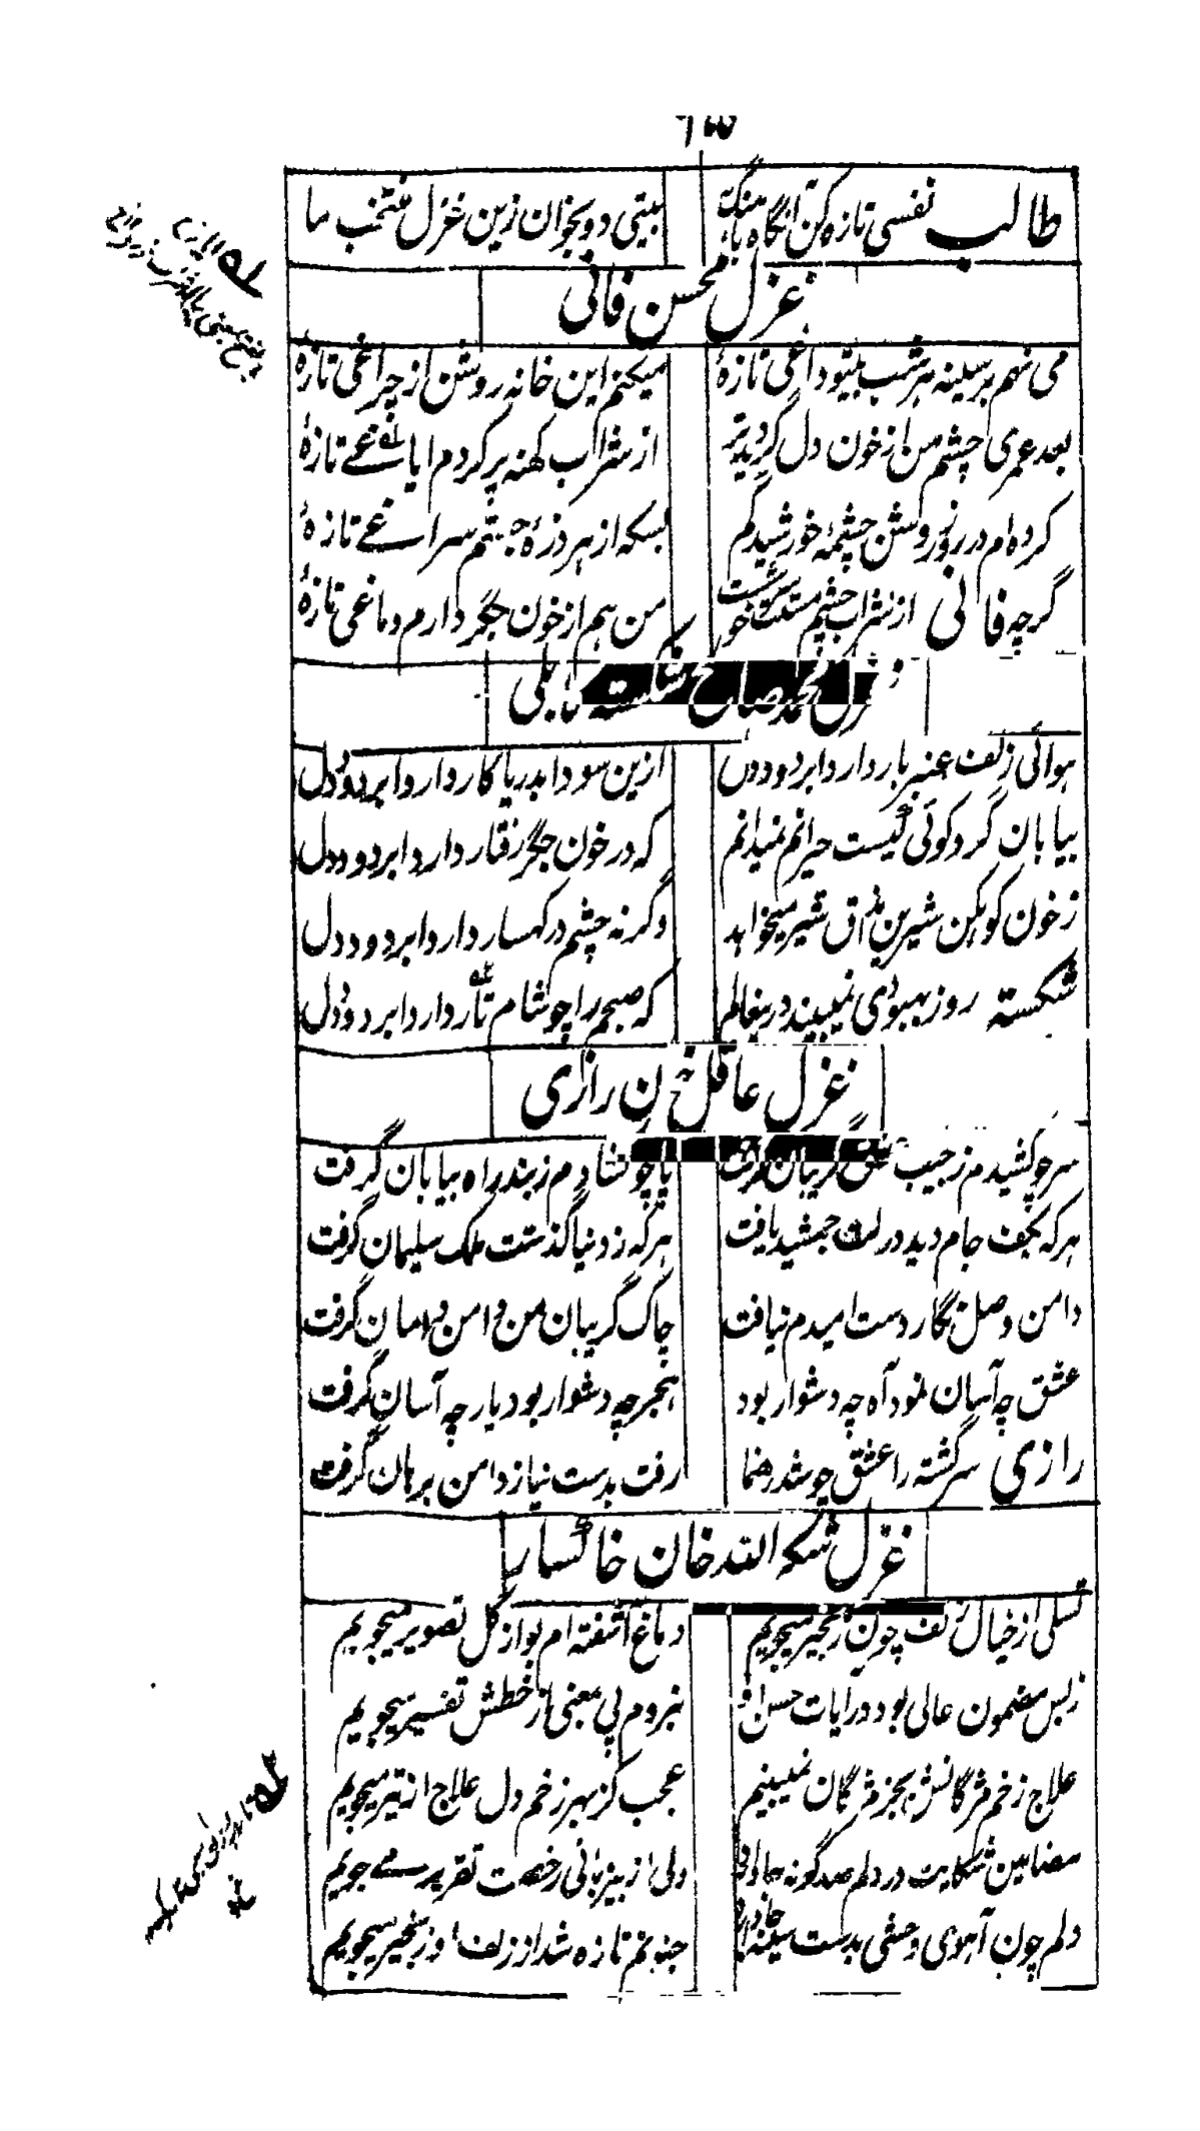 ۶۳
طالب نفسی تازه کن آنگاه بآهنگ بیتی دو بخوان زین غزل منتخب ما
غزل محسن فانی
می نهم بر سینه هر شب بیتو داغی تازهٔ میکنم این خانه روشن از چراغی تازهٔ
بعد عمری چشم من از خون دل گردید تر از شراب کهنه پر کردم ایاغے تازهٔ
کرده ام در روز روشن چشمهٔ خورشید گم بسکه از هر ذرهٔ جستم سراغے تازهٔ
گرچه فانی از شراب چشم مستت سرخوشست من هم از خون جگر دارم دماغی تازهٔ
غزل محمد صالح شکسته کابلی
هوائی زلف عنبر بار دارد ابر دود دل ازین سودا بدریا کار دارد ابر دود دل
بیابان گرد کوئی کیست حیرانم نمیدانم که در خون جگر رفتار دارد ابر دود دل
ز خون کوهکن شیرین مذاق شیر میخواهد وگرنه چشم در کهسار دارد ابر دود دل
شکسته روز بهبودی نمیبیند درینعالم که صبحم را چو شام تار دارد ابر دود دل
غزل عاقل خان رازی
سر چو کشیدم ز جیب عشق گریبان گرفت پا چو کشادم ز بند راه بیابان گرفت
هرکه بکف جام دید دولت جمشید یافت هرکه ز دنیا گذشت ملک سلیمان گرفت
دامن وصل نگار دست امیدم نیافت چاک گریبان من دامن دامان گرفت
عشق چه آسان نمود آه چه دشوار بود هجر چه دشوار بود یار چه آسان گرفت
رازی سرگشته را عشق چو شد رهنما رفت بدست نیاز دامن برهان گرفت
غزل شکر الله خان خاکسار
تسلی از خیال زلف چون زنجیر میجویم دماغ آشفته ام بو از گل تصویر میجویم
ز بس مضمون عالی بود در آیات حسن او نبردم پی بمعنی از خطش تفسیر میجویم
علاج زخم مژگانش بجز مژگان نمیبینم عجب کز بهر زخم دل علاج از تیر میجویم
مضامین شکایت در دلم صدگونه جا دارد ولی از بیزبانی رخصت تقریر مے جویم
دلم چون آهوی وحشی بدشت سینه جنونم تازه شد از زلف او زنجیر میجویم